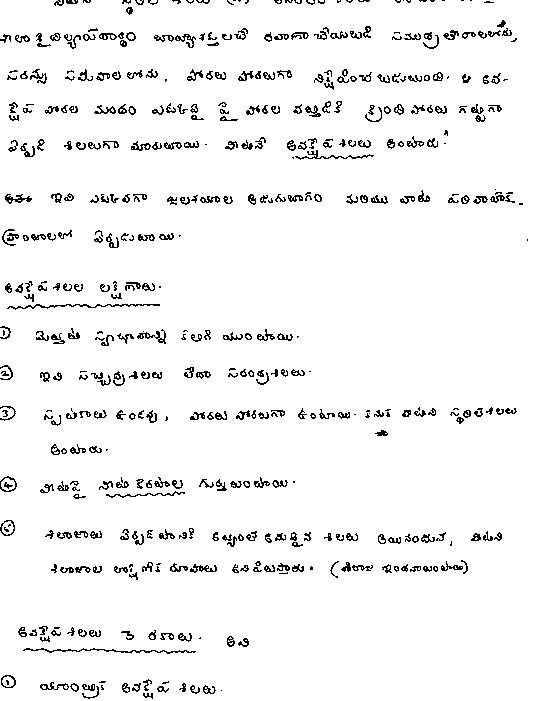 శిలా శైథిల్య పదార్థం బాహ్యశక్తులచే రవాణా చేయబడి సముద్ర తీరాలలోను,
సరస్సు సమీపాలలోను, పొరలు పొరలుగా నిక్షేపించ బడుతుంది. ఆ అవ-
క్షేప పొరల మందం ఎక్కువై పై పొరల వత్తిడికి క్రింది పొరలు గట్టిగా
ఏర్పడి శిలలుగా మారుతాయి. వీటినే అవక్షేప శిలలు అంటారు.
ఇవి ఎక్కువగా జలాశయాల అడుగుభాగం మరియు వాటి పరివాహక
ప్రాంతాలలో ఏర్పడుతాయి.
అవక్షేప శిలల లక్షణాలు.
① మెత్తటి స్వభావాన్ని కలిగి యుంటాయి.
② ఇవి సచ్ఛిద్ర శిలలు లేదా సరంధ్ర శిలలు.
③ స్ఫటికాలు ఉండవు, పొరలు పొరలుగా ఉంటాయి. కనుక వీటిని స్తరితశిలలు
అంటారు.
④ వీటిపై నీటి కెరటాల గుర్తులుంటాయి.
⑤ శిలాజాలు ఏర్పడటానికి అనువైన శిలలు అయినందున, వీటిని
శిలాజాల రూపాలు కనిపిస్తాయి.
అవక్షేప శిలలు 3 రకాలు. అవి
① యాంత్రిక అవక్షేప శిలలు.